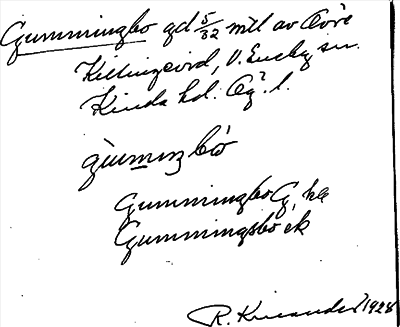 Gummingbo gd 5/32 mtl av Övre
Killingevid, V. Eneby sn.
Kinda hd. Ög. l.
gùmıŋbó
Gummingbo G, ka
Gummingsbo ek
R. Kinander 1928